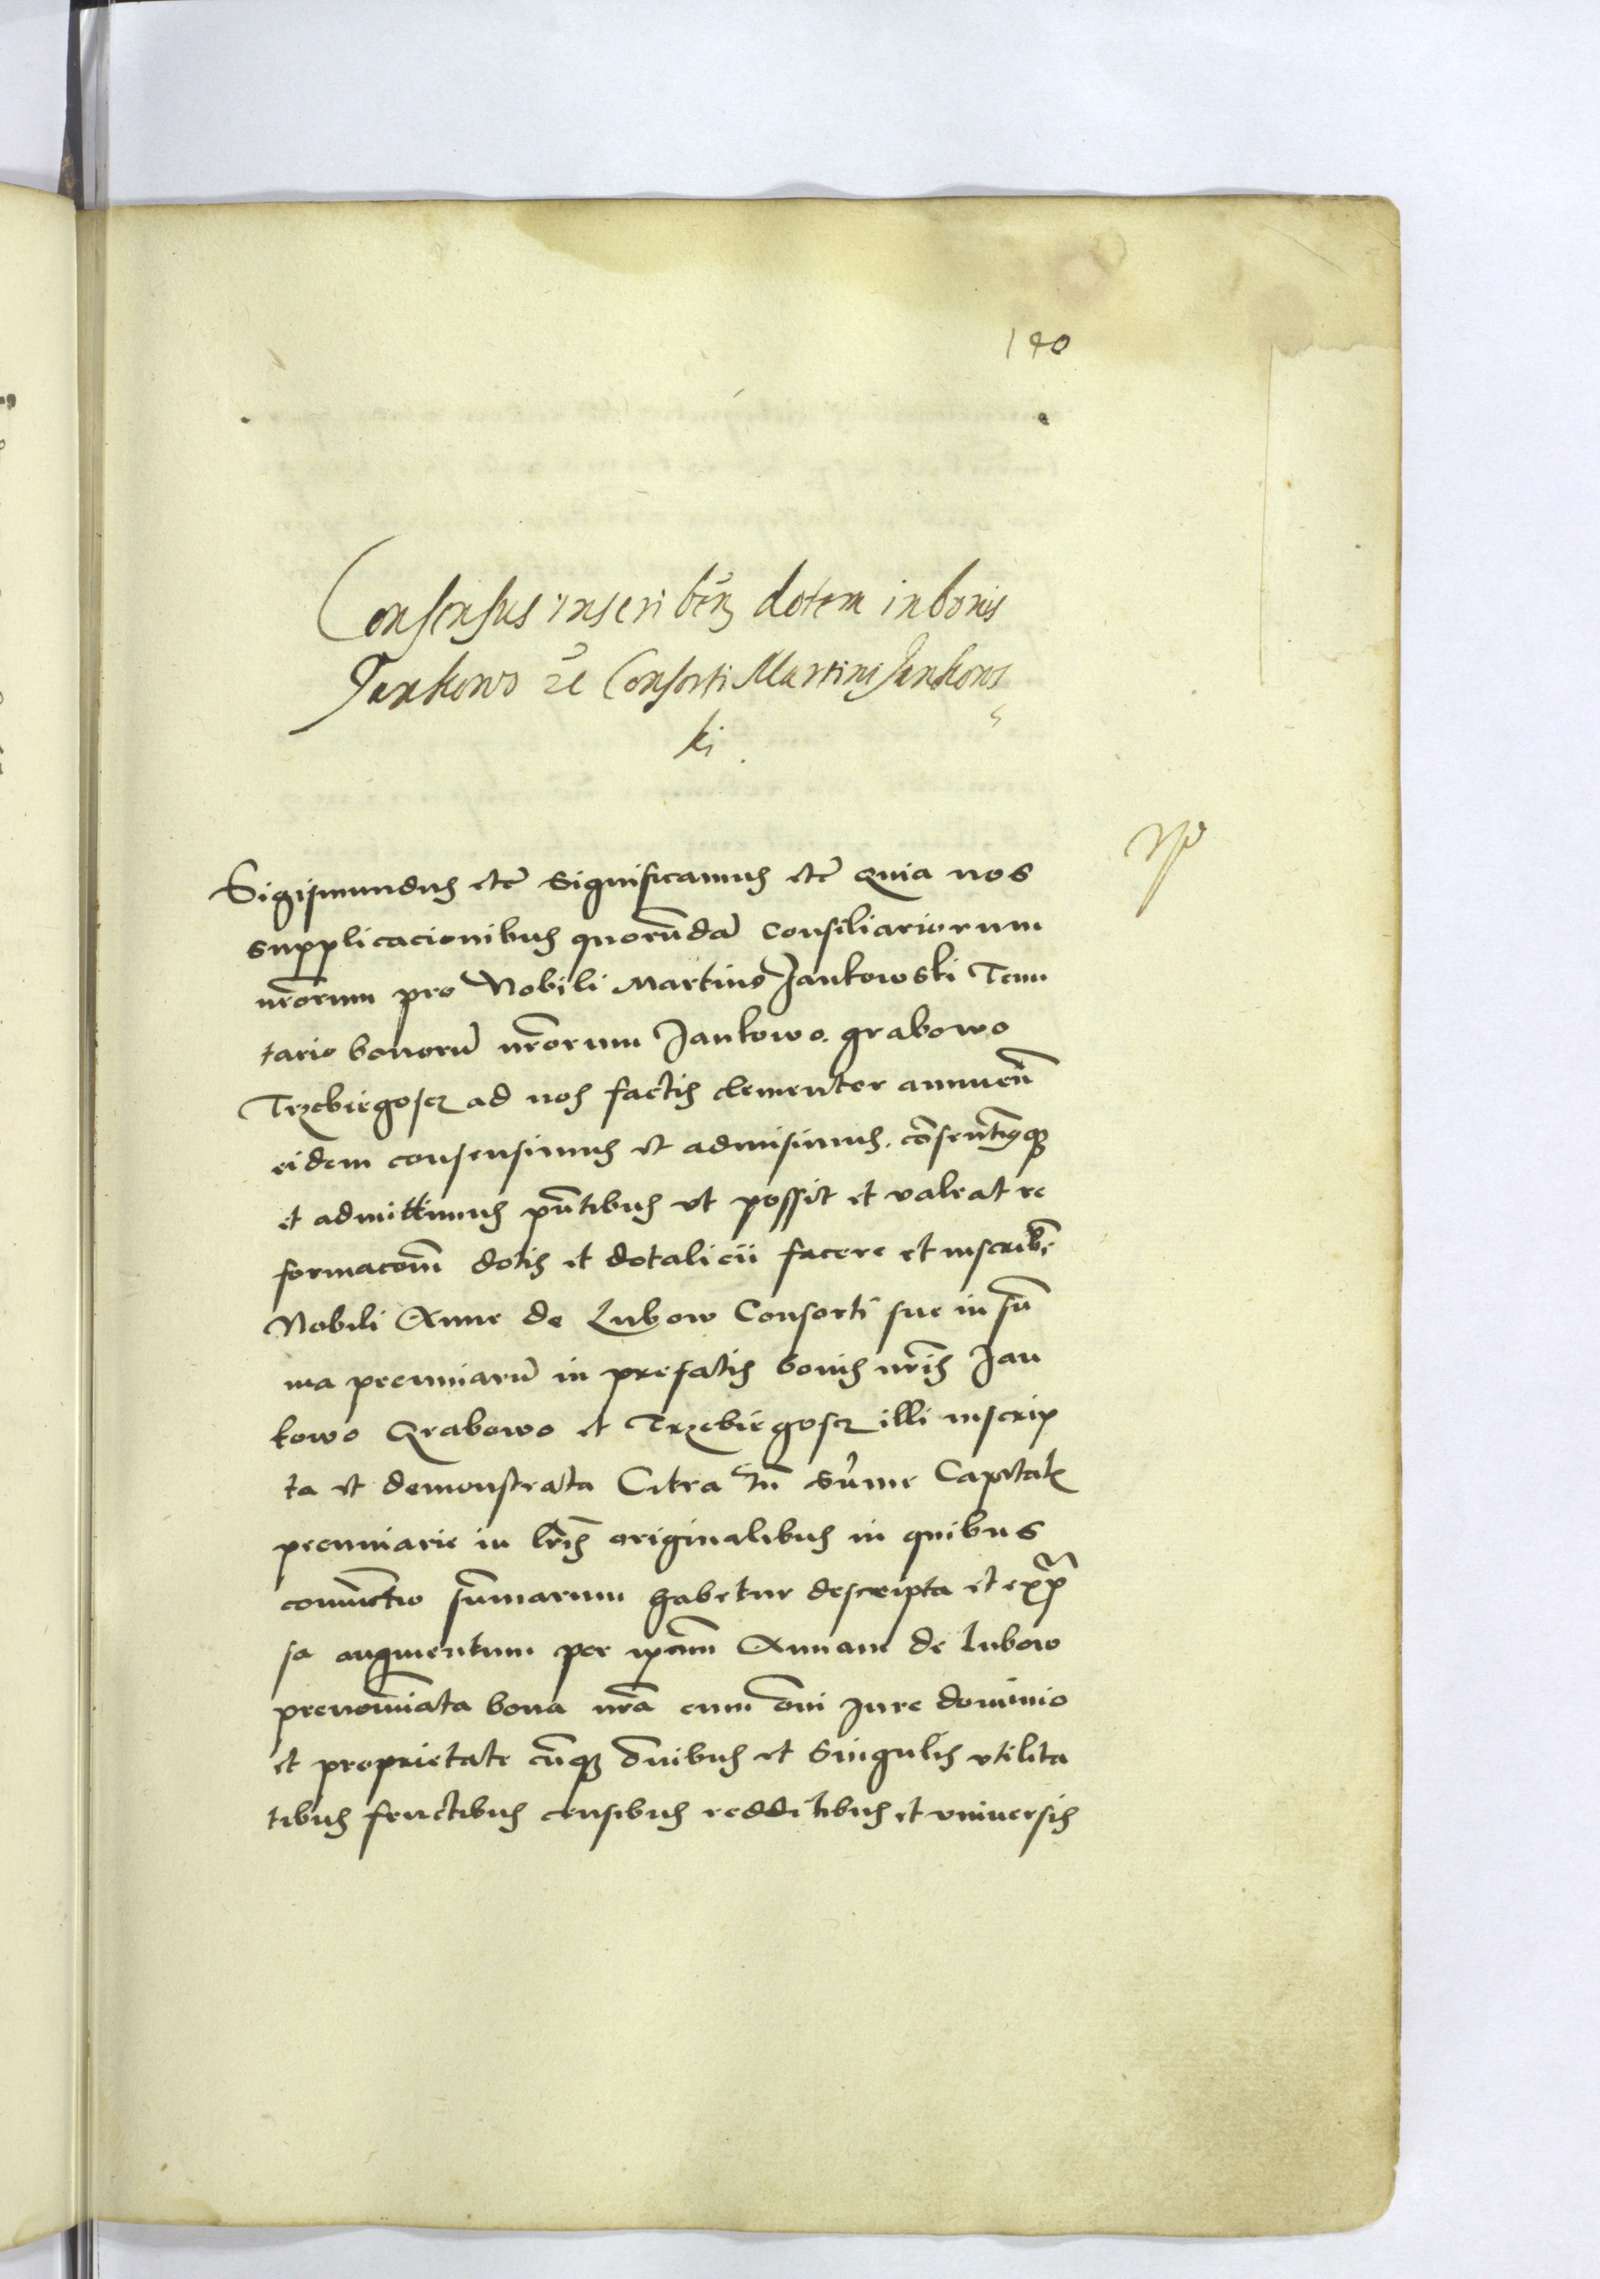 140
Consensus inscribēn dotem in bonis
Jankowo ꝛē Consorti Martini Jankows
ki
Sigismundus etc̄ Significamus etc̄ Quia nos
supplicacionibus quorūdā Consiliariorum
nr̄orum pro Nobili Martino Jankowski Tenu
tario bonorū nr̄orum Jankowo. grabowo
Trzebiegoscz ad nos factis clementer annuen̄
eidem consensimus et admisimus. cōsentimꝰqꝫ
et admittimus pn̄tibus vt possit et valeat re
formacōm̄ dotis et dotalicii facere et inscribr̄e
Nobili Anne de Lubow Consorti sue in sū
ma pecuniarū in prefatis bonis nr̄is Jan
kowo Grabowo et Trzebiegoscz illi inscrip
ta et demonstrata Citra tn̄ sūme Capitalis
pecuniarie in lr̄is originalibus in quibus
coniunctio sūmarum habetur descripta et expr̄s
sa augmentum per ip̄am Annam de Lubow
prenoīata bona nr̄a cum om̄i Jure dominio
et proprietate cūqꝫ om̄ibus et Singulis vtilita
tibus fructibus censibus redditibus et vniuersis